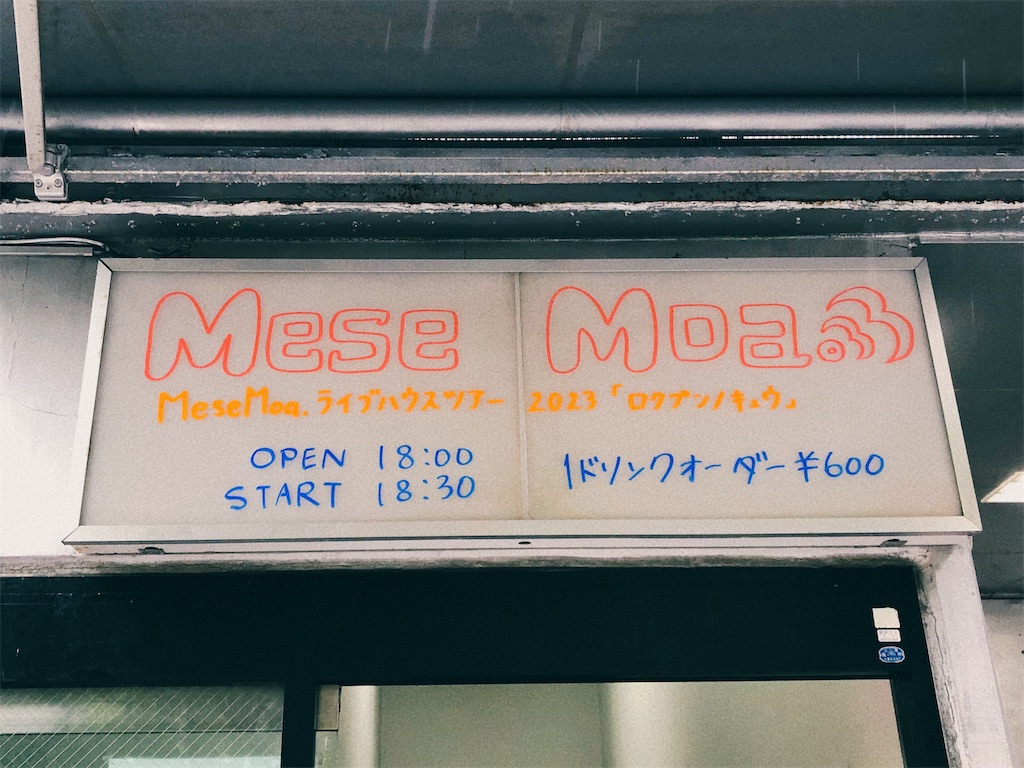 Mese Moa
MeseMoa.ライブハウスツアー 2023「ロクプンノキュウ」
OPEN 18:00
START 18:30
1ドリンクオーダー ¥600